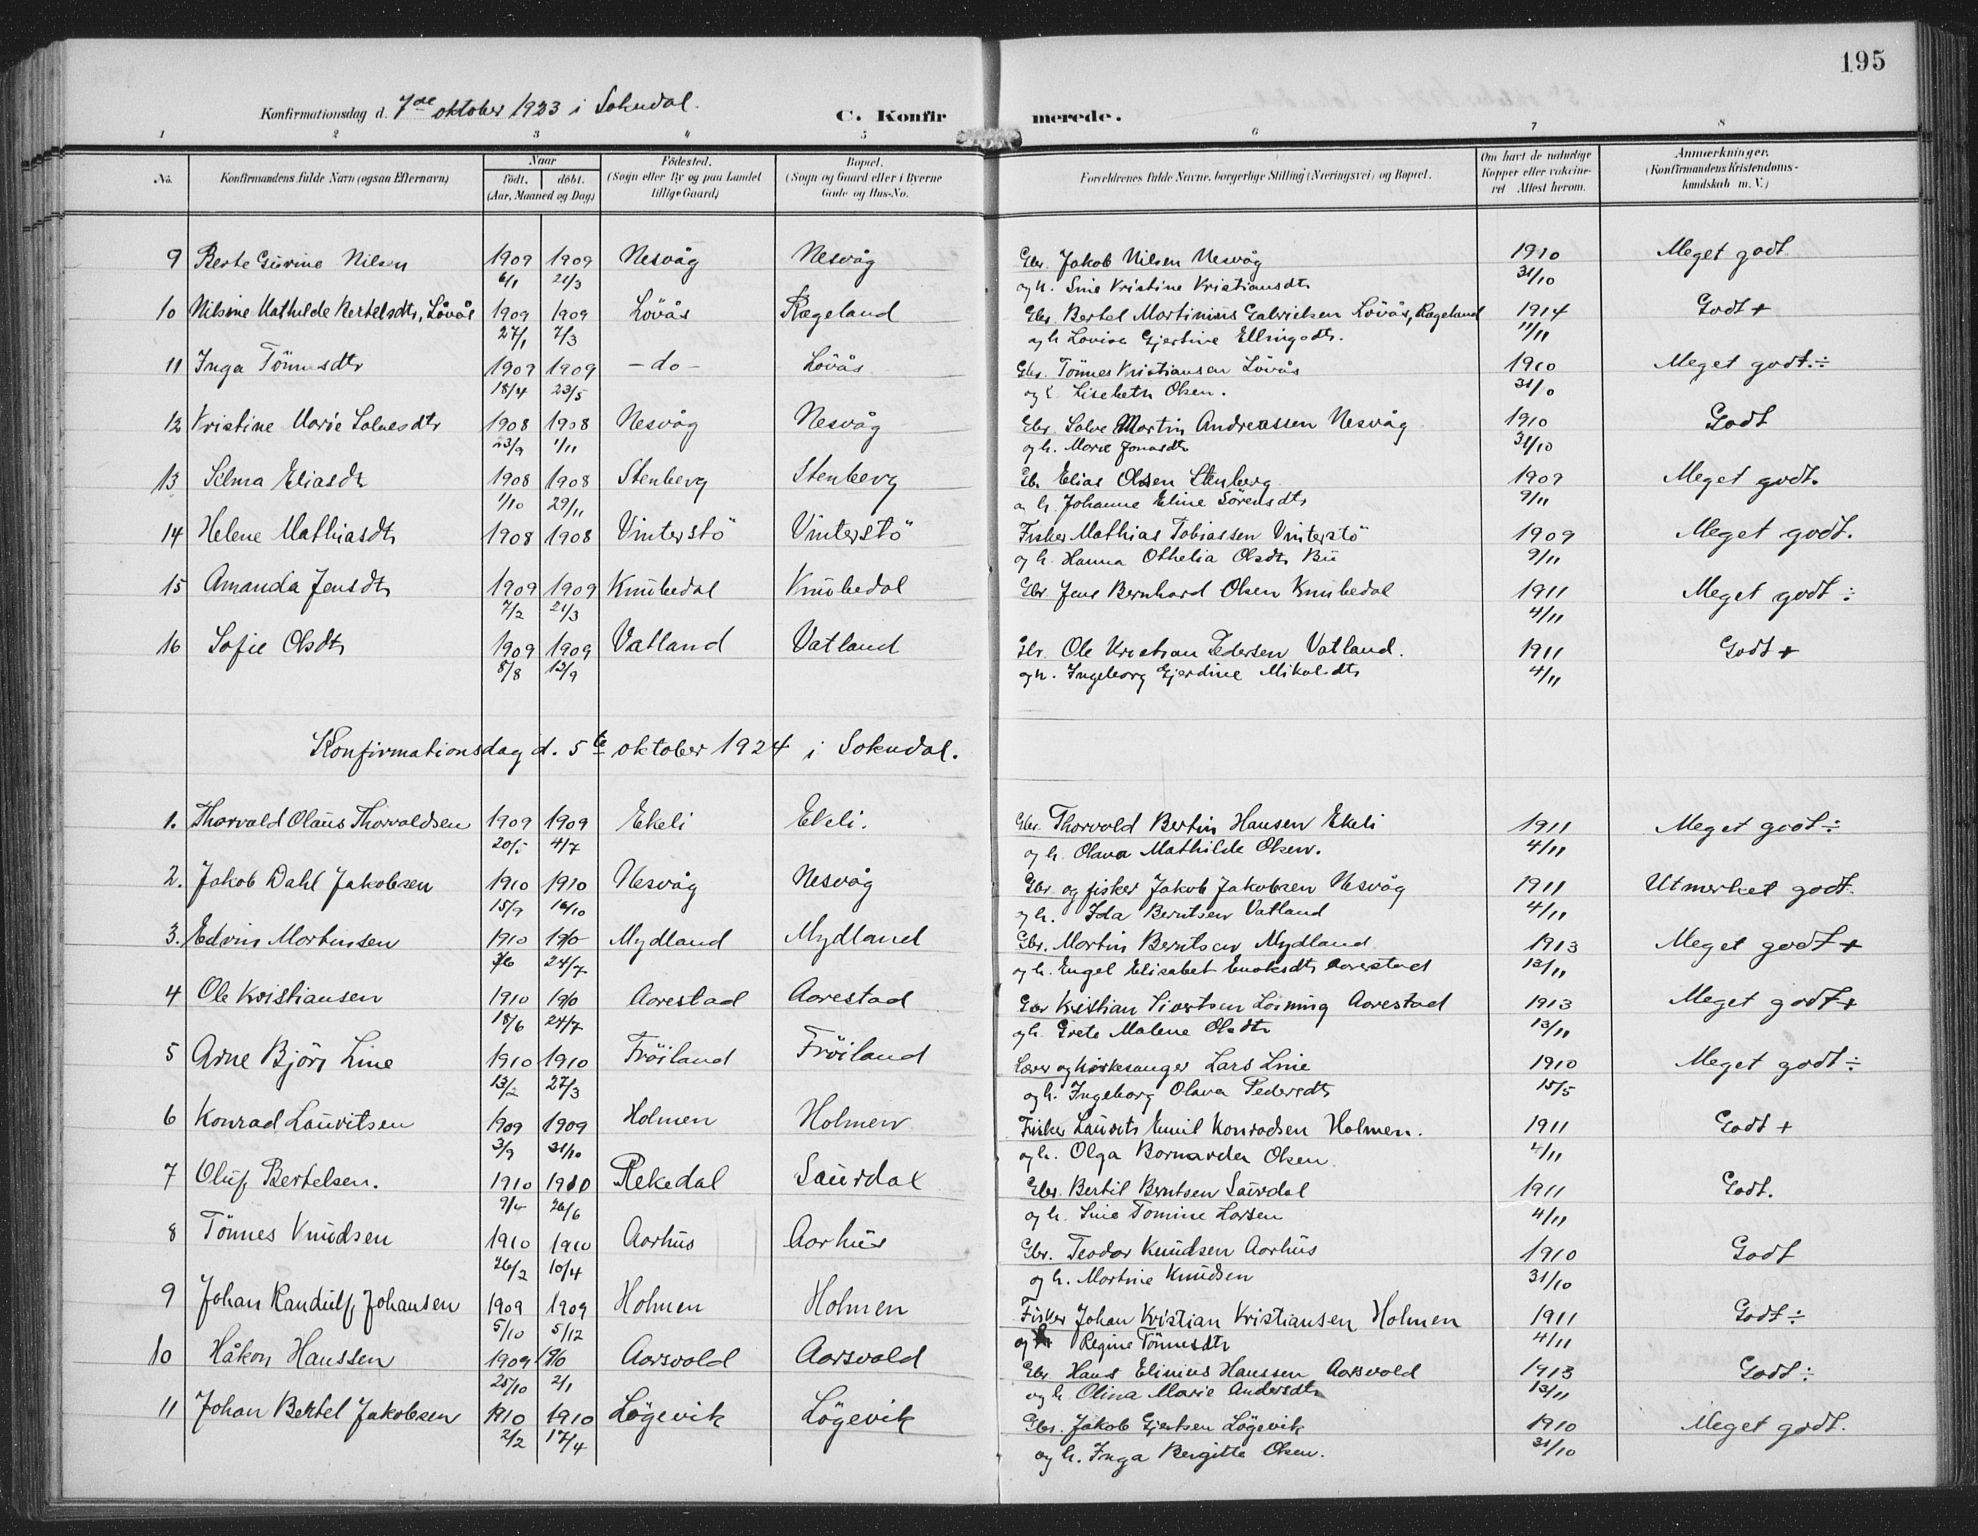 195
Konfirmationsdag d. 7de oktober 1923 i Sokndal.
C. Konfirmerede.
1 2 3 4 5 6 7 8
No. Konfirmandens fulde Navn (ogsaa Efternavn) Naar født. døbt. (Aar, Maaned og Dag) Födested. (Sogn eller By og paa Landet tillige Gaard) Bopæl. (Sogn og Gaard eller i Byerne Gade og Hus-No. Forældrenes fulde Navne, borgerlige Stilling (Næringsvei) og Bopæl. Om havt de naturlige Kopper eller vakcineret Attest herom. Anmærkninger. (Konfirmandens Kristendomskundskab m. V.)
9 Berte Gurine Nilsen 1909 1909 Nesvåg Nesvåg Gbr. Jakob Nilsen Nesvåg 1910 Meget godt
6/1 21/3 og h. Sine Kristine Kristiansdtr 31/10
10 Nilsine Mathilde Bertelsdtr, Lövås 1909 1909 Lövås Rægeland Gbr. Bertel Martinius Gabrielsen Lövås, Rægeland 1914 Godt +
27/1 7/3 og h. Lovise Gjertine Ellingsdtr. 11/11
11 Inga Tönnesdtr 1909 1909 – do – Lövås Gbr. Tönnes Kristiansen Lövås 1910 Meget godt ÷
18/4 23/5 Lisebeth Olsen.
12 Kristine Marie Salvesdtr 1908 1908 Nesvåg Nesvåg Gbr. Salve Martin Andreassen Nesvåg 1910 Godt
23/9 1/11 og h. Marie Jonasdtr 31/10
13 Selma Eliasdtr 1908 1908 Stenberg Stenberg Gbr. Elias Olsen Stenberg 1909 Meget godt.
1/10 29/11 og h. Johanne Eline Sörensdtr 9/11
14 Helene Mathiasdtr 1908 1908 Vinterstö Vinterstö Fisker Mathias Tobiassen Vinterstö 1909 Meget godt.
og h. Hanna Othelia Olsdtr Bu 9/11
15 Amanda Jensdtr 1909 1909 Knubedal Knubedal Gbr. Jens Bernhard Olsen Knubedal 1911 Meget godt ÷
7/2 21/3 4/11
16 Sofie Olsdtr 1909 1909 Vatland Vatland Gbr. Ole Kristian Pedersen Vatland. 1911 Godt +
8/8 12/9 og h. Ingeborg Gjerdine Mikalsdtr 4/11
Konfirmationsdag d. 5te oktober 1924 i Sokndal.
1. Thorvald Olaus Thorvaldsen 1909 1909 Ekeli Ekeli. Gbr. Thorvald Bertin Hansen Ekeli 1911 Meget godt ÷
4/7 og h. Olava Mathilde Olsen. 4/11
2. Jakob Dahl Jakobsen 1910 1910 Nesvåg Nesvåg Gbr og fisker Jakob Jakobsen Nesvåg 1911 Utmerket godt.
15/9 16/10 og h. Ida Berntsen Vatland 4/11
3. Edvin Martinsen 1910 1910 Mydland Mydland Gbr. Martin Berntsen Mydland 1913 Meget godt +
24/7 og h. Engel Elisabet Enoksdtr Aarestad 13/11
4 Ole Kristiansen 1910 1910 Aarestad Aarestad Gbr Kristian Sivertsen Aarestad 1913 Meget godt +
18/6 24/7 og h. Grete Malene Olsdtr 13/11
5 Arne Björn Line 1910 1910 Fröiland Fröiland Lærer og kirkesanger Lars Line 1910 Meget godt ÷
13/2 27/3 og h. Ingeborg Olava Pedersdtr 15/5
6 Konrad Lauritsen 1909 1909 Holmen Holmen Fisker Laurits Emil Konradsen Holmen. 1911 Godt +
3/9 31/10 og h. Olga Bernarda Olsen 4/11
7 Oluf Bertelsen. 1910 1910 Rekedal Saurdal Gbr. Bertil Berntsen Saurdal 1911 Godt.
9/4 26/6 og h. Sine Tomine Larsen 4/11
8 Tönnes Knudsen 1910 1910 Aarhus Aarhus Gbr. Teodor Knudsen Aarhus 1910 Godt
26/2 10/4 og h. Martine Knudsen 31/10
9 Johan Randulf Johansen 1909 1909 Holmen Holmen Fisker Johan Kristian Kristiansen Holmen 1911 Godt ÷
5/10 5/12 og h Regine Tönnesdtr 4/11
10 Håkon Hanssen 1909 1910 Aarsvold Aarsvold Gbr Hans Elinius Hanssen Aarsvold 1913 Godt ÷
25/10 2/1 og h. Olina Marie Andersdtr 13/11
11 Johan Bertel Jakobsen 1910 1910 Lögevik Lögevik Gbr. Jakob Gjertsen Lögevik 1910 Meget godt.
2/2 17/4 og h. Inga Bergitte Olsen. 31/10